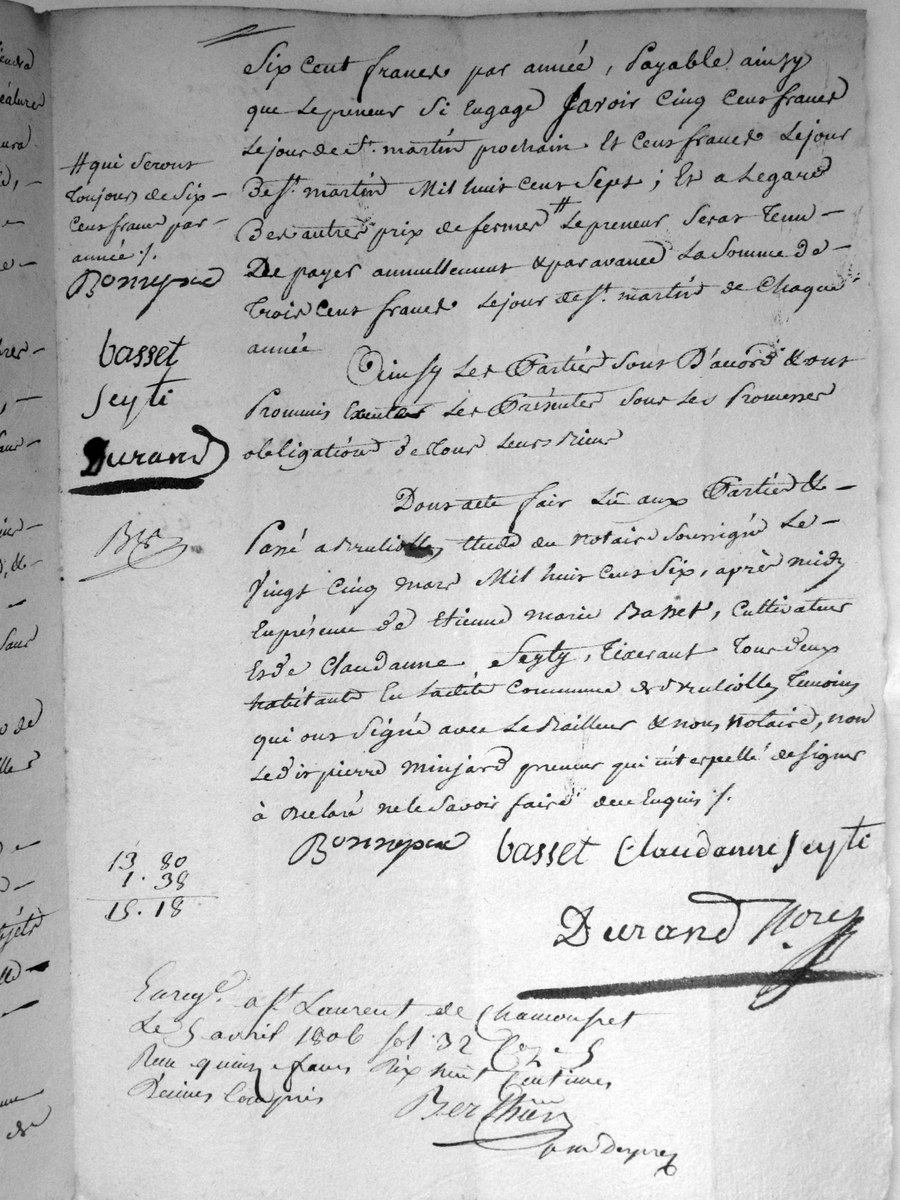 Six Cent francs par année, Payable ainsy
que Lepreneur Si Engage Savoir Cinq Cens francs
Lejour de St. martin prochain Et Cens francs Lejour
De St. martin Mil huit cent Sept; Et a Legard
Des autres prix de fermes # Lepreneur Seras Tenu
De payer annuellement & par avance La Somme de
Trois Cens francs Lejour de St. martin de Chaque
année
# qui Seront
Toujours de Six
Cens franc par
année /.
basset
Seyti
Durand
Ainsy Les Partiés Sont D'acord & ont
Prommis Executer Les Présentes Sous Les Promesses
obbligations de Tous Leurs Biens
Dont acte fait Lü aux Partiés &
Passé a Brullioles Etude du Notaire Soussigné Le
Vingt Cinq mars Mil huit Cent Six, après midy
En présence De Etienne marie Basset, Cultivateur
Et De Claudanne Seyty, Tixerant Tous Deux
habitants En Ladite Commune de Brullioles Temoins
qui ont Signé avec Le Bailleur & nous Notaire, non
Ledit pierre minjard preneur qui interpellé de Signer
à Declaré ne le Savoir faire de ce Enquis /.
basset Claudanne Seyti
Durand Nore
13 80
1. 38
15. 18
Enregé. a St. Laurent de Chamousset
Le 5 avril 1806 fol. 32 Ce 5
Reçu quinze francs Dix huit Centimes
Dixmes Compris